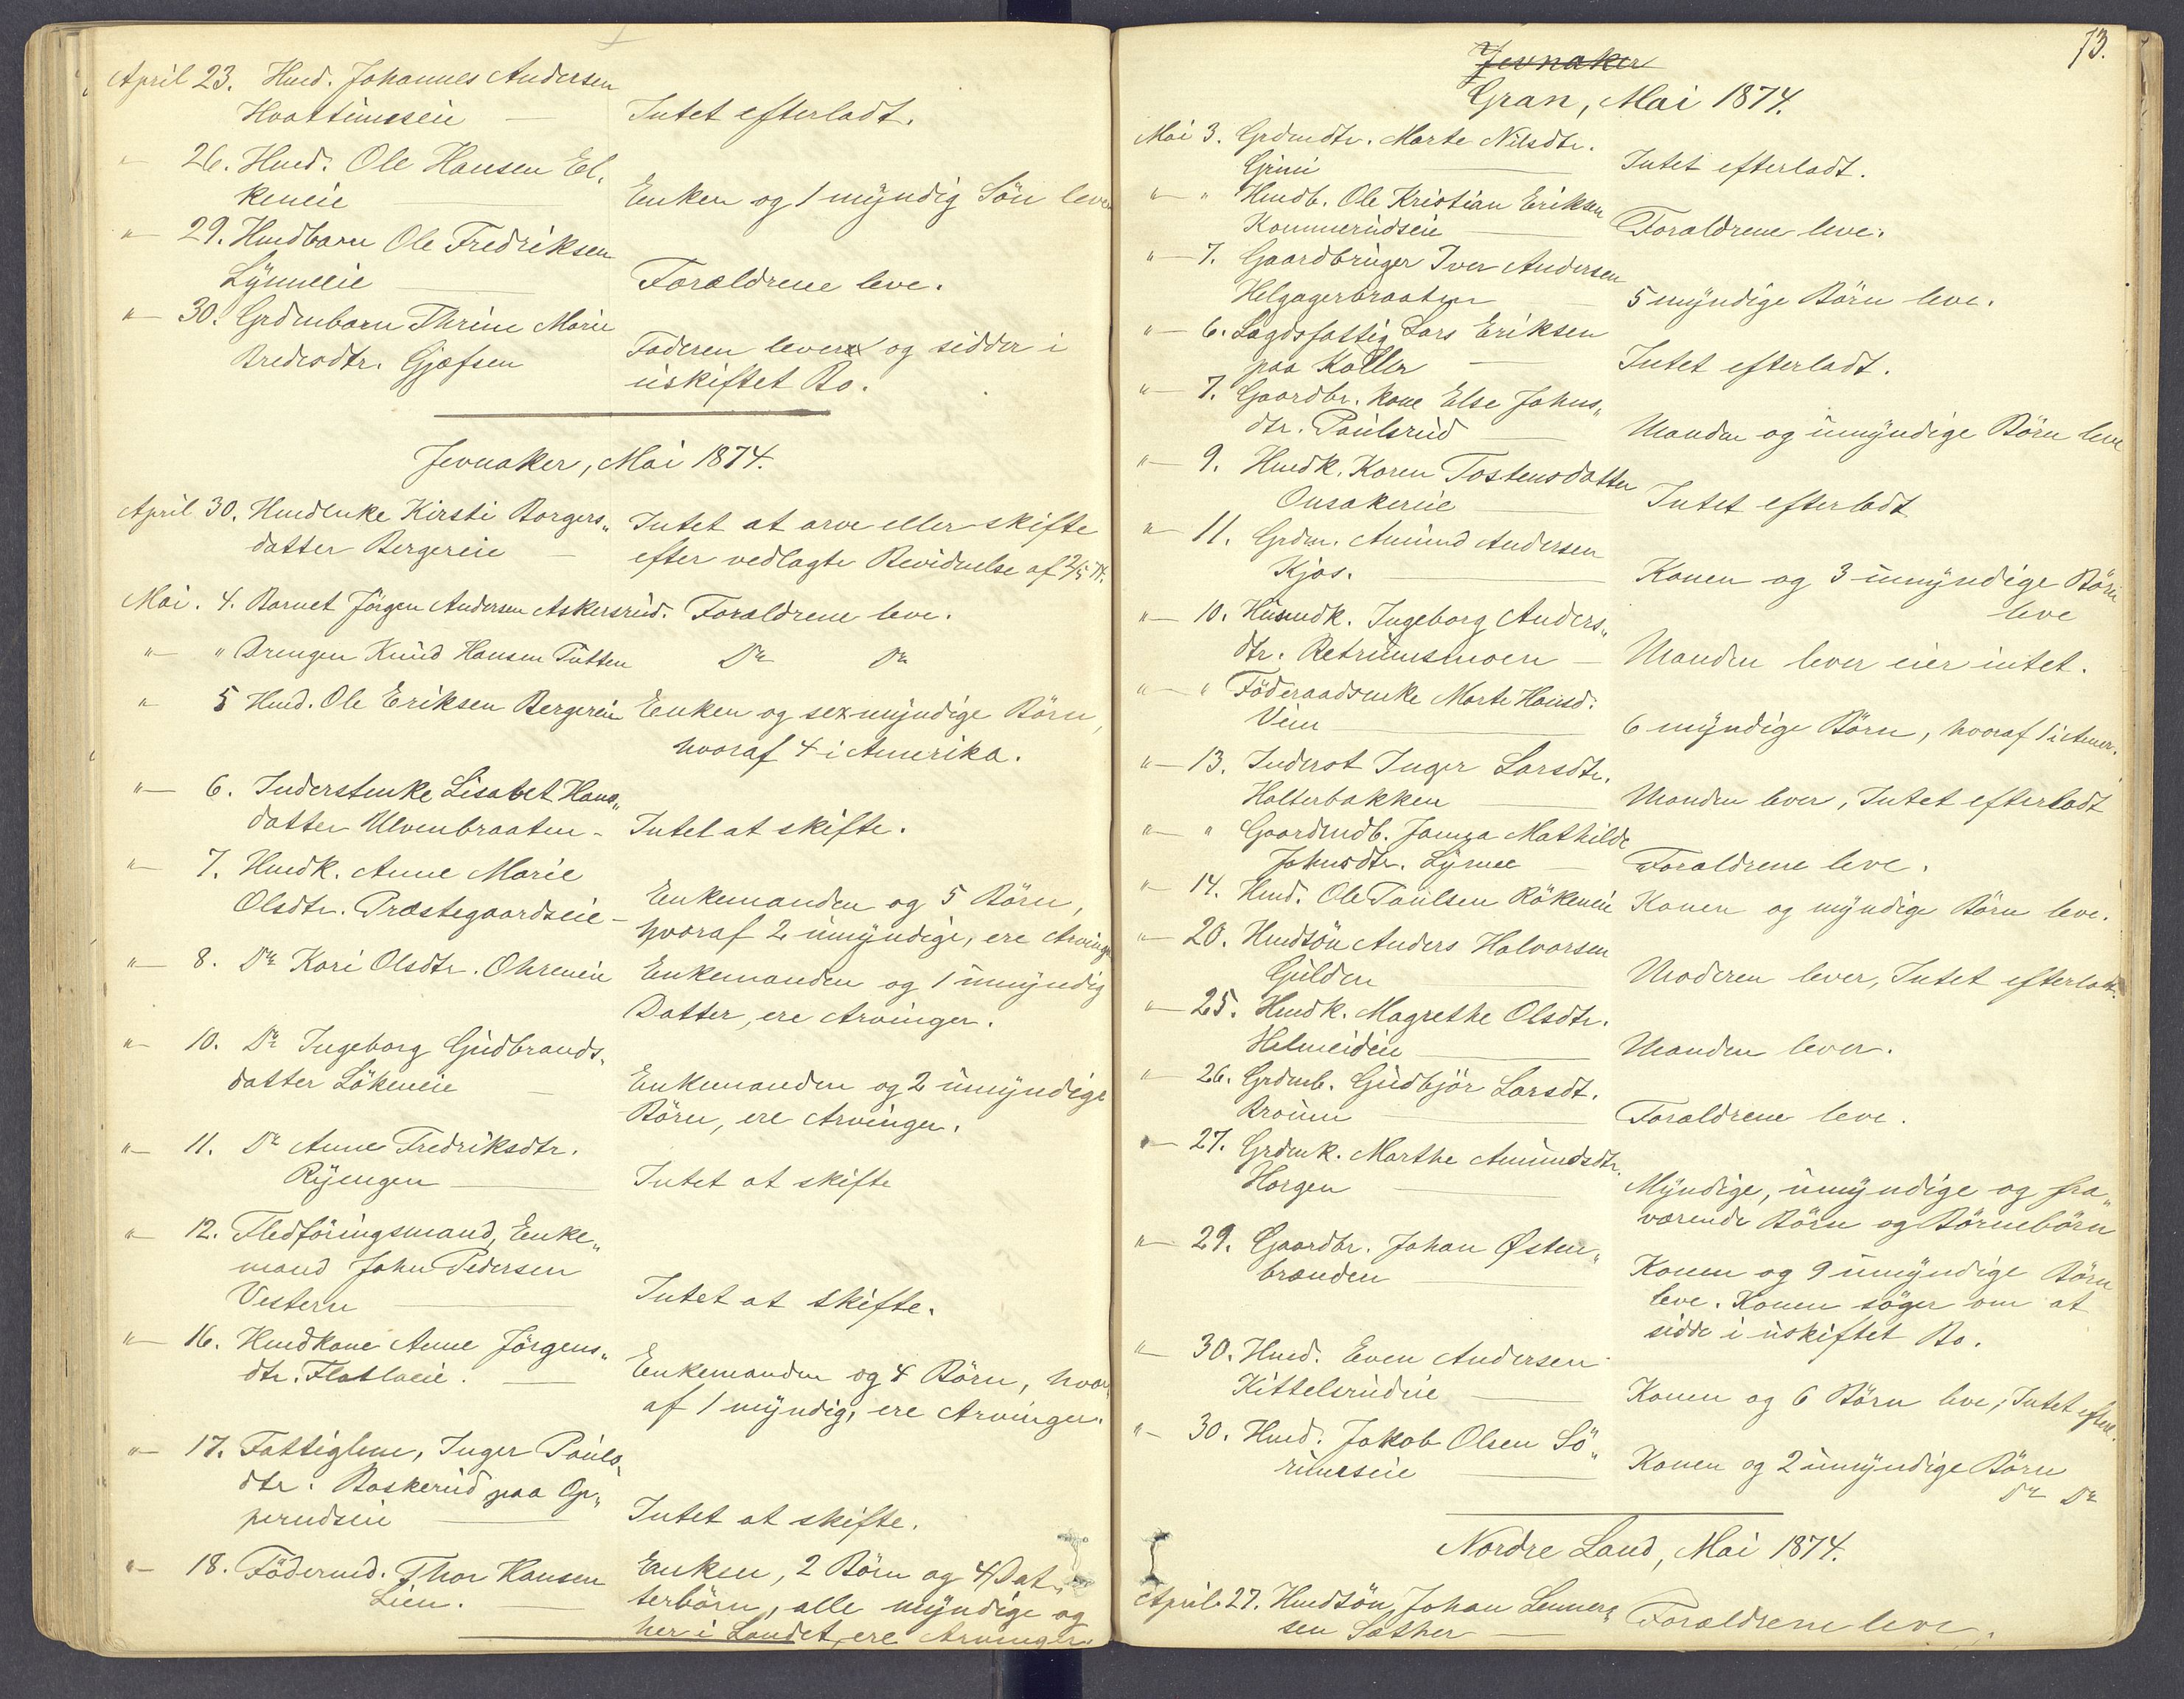 April 23. Hmd. Johannes Andersen
Hvattumseie — Intet efterladt.
"— 26. Hmd. Ole Hansen El-
keneie Enken og 1 myndig Sön lever
"— 29. Hmdbarn Ole Fredriksen
Lynneeie Forældrene leve.
"— 30. Grdmbarn Thrine Marie
Bredesdtr. Gjefsen Faderen lever og sidder i
uskiftet Bo.
Jevnaker, Mai 1874.
April 30. Hmdenke Kirsti Borgers„ Intet at arve eller skifte
datter Bergereie — efter vedlagte Bevidnelse af 2/5 74.
Mai. 4. Barnet Jörgen Andersen Askersrud. Forældrene leve.
"— " Drengen Knud Hansen Tutten Do Do
"— 5 Hmd. Ole Eriksen Bergereie Enken og sex myndige Börn,
hvoraf 4 i Amerika.
"— 6. Inderstenke Lisabet Hans„
datter Ulvenbraaten - Intet at skifte.
"— 7. Hmdk. Anne Marie
Olsdtr. Præstegaardseie - Enkemanden og 5 Börn,
hvoraf 2 umyndige, ere Arvinger
"— 8. Do Kari Olsdtr. Ohreneie Enkemanden og 1 umyndig
Datter, ere Arvinger.
"— 10. Do Ingeborg Gudbrands„
datter Lökeneie — Enkemanden og 2 umyndige
Börn, ere Arvinger.
"— 11. Do Anne Fredriksdtr.
Ryengen Intet at skifte
"— 12. Fledföringsmand, Enke„
mand John Pedersen
Vestern Intet at skifte.
"— 16. Hmdkone Anne Jörgens„
dtr. Flatlaeie. Enkemanden og 4 Börn, hvor
af 1 myndig, ere Arvinger.
"— 17. Fattiglem, Inger Pauls„
dtr. Baskerud paa Op„
perudseie Intet at skifte.
"— 18. Födermd. Thor Hansen Enken, 2 Börn og 4 Dat„
Lien. terbörn, alle myndige og
her i Landet, ere Arvinger.
73.
Jevnaker
Gran, Mai 1874.
Mai 3. Grdmdtr. Marte Nilsdtr.
Grini Intet efterladt.
"— " Hmdb. Ole Kristian Eriksen
Kammerudseie Forældrene leve.
"— 7. Gaardbruger Iver Andersen
Helgagerbraaten 5 myndige Börn leve.
"— 6. Lægdsfattig Lars Eriksen
paa Koller Intet efterladt.
"— 7. Gaardbr. kone Else Johns„
dtr. Paulsrud Manden og umyndige Börn leve
"— 9. Hmdk. Karen Tostensdatter
Onsakereie Intet efterladt
"— 11. Grdm. Amund Andersen
Kjos. Konen og 3 umyndige Börn
leve
"— 10. Husmdk. Ingeborg Anders„
dtr. Retrumsmoen — Manden lever eier intet.
"— " Föderaadsenke Marte Hansd.
Vien 6 myndige Börn, hvoraf 1 i Amer.
"— 13. Inderst Inger Larsdtr.
Halterbakken Manden lever, Intet efterladt
"— " Gaardmdb. Mathilde
Johnsdtr. Lynne Forældrene leve.
"— 14. Hmd. Ole Paulsen Rökeneie Konen og myndige Börn leve.
"— 20. Hmdsön Anders Halvorsen
Gulden Moderen lever, Intet efterladt.
"— 25. Hmdk. Magrethe Olsdtr.
Helmeideie Manden lever.
"— 26. Grdmb. Gudbjör Larsdt.
Braunn Forældrene leve.
"— 27. Grdmk. Marthe Amundsdtr.
Horgen Myndige, umyndige og fra„
værende Börn og Börnebörn
"— 29. Gaardbr. Johan Østen„
brænden Konen og 9 umyndige Börn
leve. Konen söger om at
sidde i uskiftet Bo.
"— 30. Hmd. Even Andersen
Kittelsrudeie Konen og 6 Börn leve; Intet efterl.
"— 30. Hmd. Jakob Olsen Sö„
rumseie Konen og 2 umyndige Börn
Do Do
Nordre Land, Mai 1874.
April 27. Hmdsön Johan Lenners„
sen Sæther Forældrene leve.